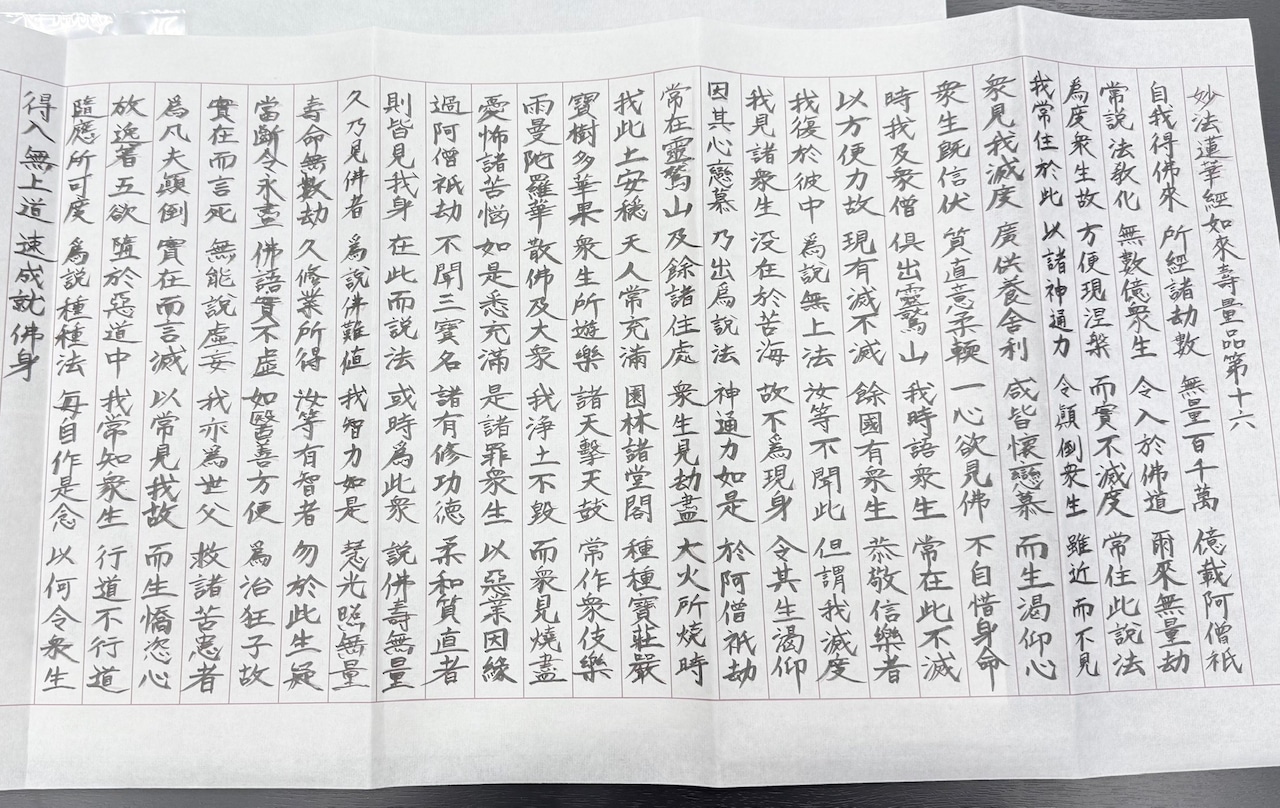 妙法蓮華經如來壽量品第十六
自我得佛來 所經諸劫數 無量百千萬 億載阿僧祇
常説法教化 無數億衆生 令入於佛道 爾來無量劫
為度衆生故 方便現涅槃 而實不滅度 常住此説法
我常住於此 以諸神通力 令顛倒衆生 雖近而不見
衆見我滅度 廣供養舍利 咸皆懷戀慕 而生渇仰心
衆生既信伏 質直意柔輭 一心欲見佛 不自惜身命
時我及衆僧 倶出靈鷲山 我時語衆生 常在此不滅
以方便力故 現有滅不滅 餘國有衆生 恭敬信樂者
我復於彼中 為説無上法 汝等不聞此 但謂我滅度
我見諸衆生 没在於苦海 故不為現身 令其生渇仰
因其心戀慕 乃出為説法 神通力如是 於阿僧祇劫
常在靈鷲山 及餘諸住處 衆生見劫盡 大火所燒時
我此土安穏 天人常充滿 園林諸堂閣 種種寶莊嚴
寶樹多華果 衆生所遊樂 諸天擊天鼓 常作衆伎樂
雨曼陀羅華 散佛及大衆 我浄土不毀 而衆見燒盡
憂怖諸苦惱 如是悉充滿 是諸罪衆生 以惡業因緣
過阿僧祇劫 不聞三寶名 諸有修功徳 柔和質直者
則皆見我身 在此而説法 或時為此衆 説佛壽無量
久乃見佛者 為説佛難値 我智力如是 慧光照無量
寿命無數劫 久修業所得 汝等有智者 勿於此生疑
當斷令永盡 佛語實不虚 如醫善方便 為治狂子故
實在而言死 無能説虚妄 我亦為世父 救諸苦患者
為凡夫顛倒 實在而言滅 以常見我故 而生憍恣心
放逸著五欲 墮於惡道中 我常知衆生 行道不行道
隨應所可度 為説種種法 毎自作是念 以何令衆生
得入無上道 速成就佛身